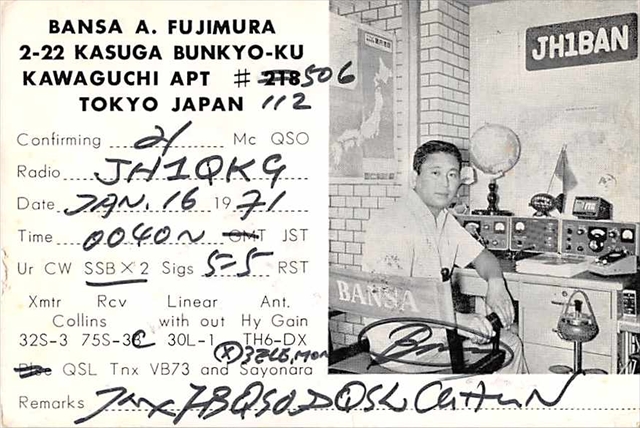 BANSA A. FUJIMURA
2-22 KASUGA BUNKYO-KU
KAWAGUCHI APT # 218 506
TOKYO JAPAN 112
Confirming 21 Mc QSO
Radio JH1QKG
Date JAN. 16 1971
Time 0040 GMT JST
Ur CW SSB×2 Sigs 5-5 RST
Xmtr Rcv Linear Ant.
Collins with out Hy Gain
32S-3 75S-3C 30L-1 TH6-DX
QSL Tnx VB73 and Sayonara
Remarks
JH1BAN
BANSA